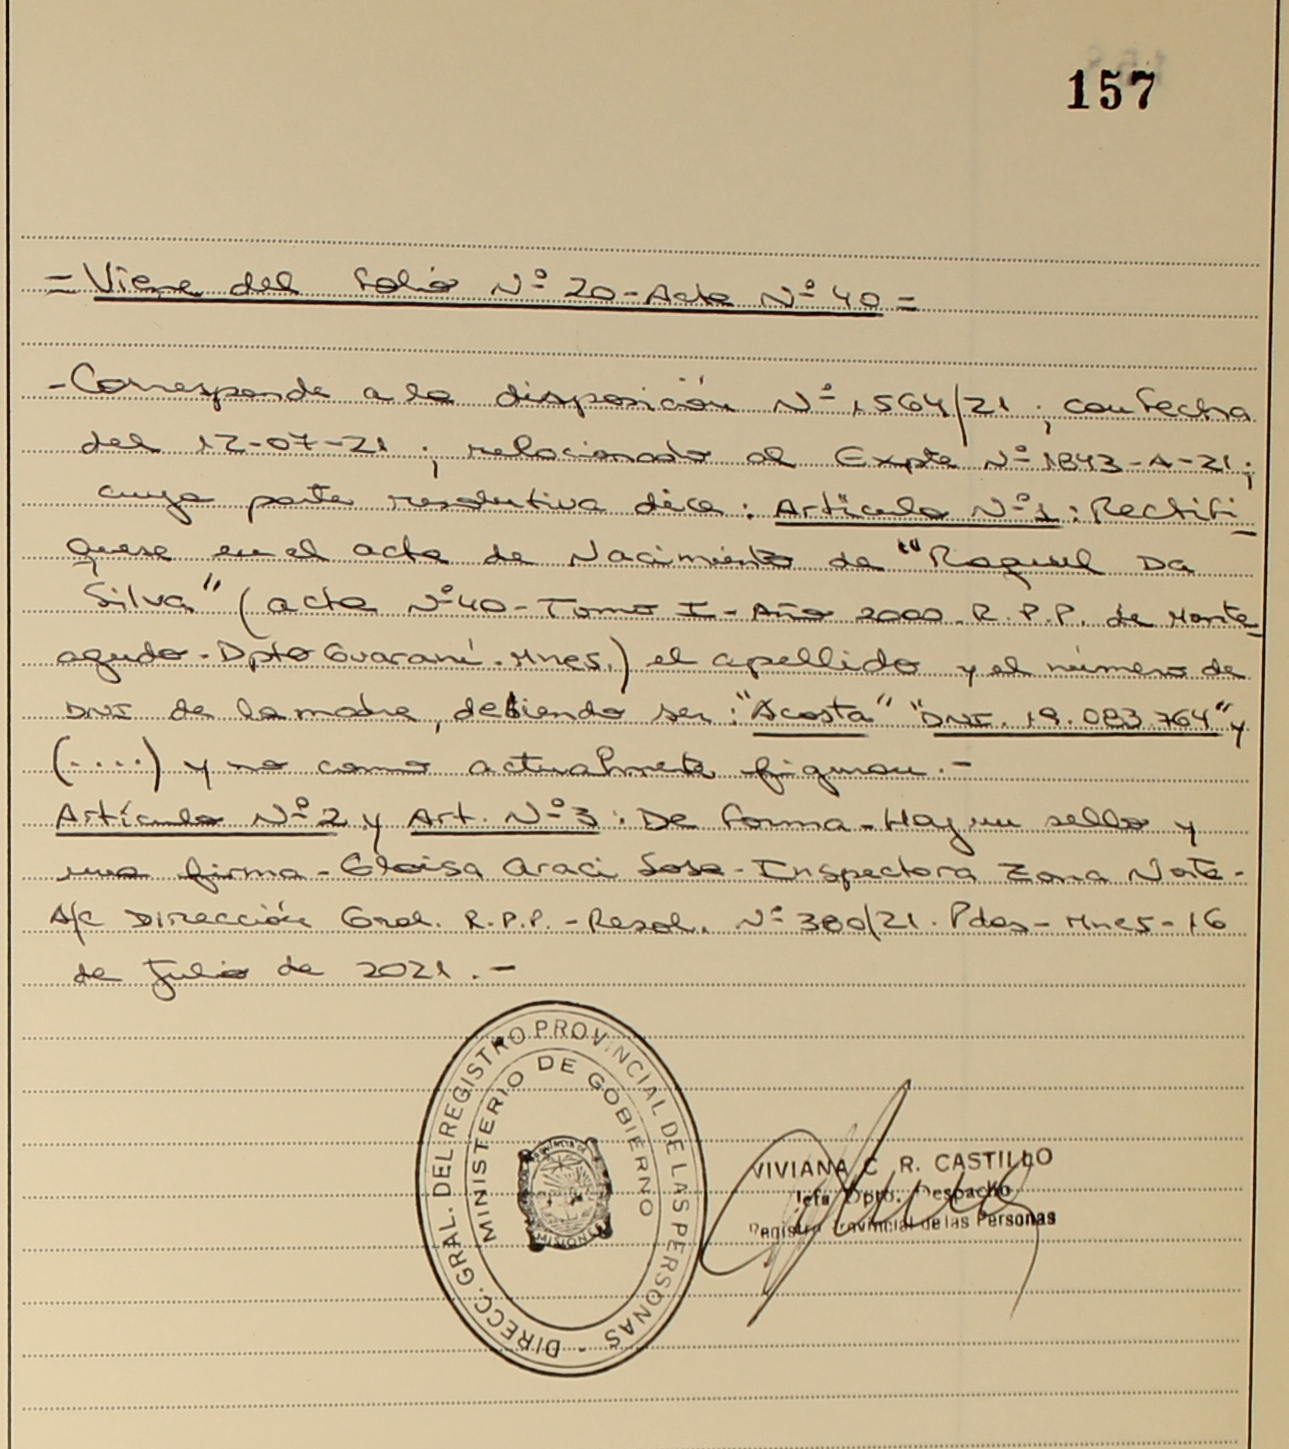 157
= Viene del folio Nº 20 - Acta Nº 40 =
- Corresponde a la disposición Nº 1564/21 ; con fecha
del 12-07-21 ; relacionado al Expte Nº 1843-A-21;
cuya parte resolutiva dice : Artículo Nº 1 : Rectifi-
quese en el acta de Nacimiento de "Raquel Da
Silva" (acta Nº 40 - Tomo I - Año 2000 R.P.P. de Monte-
agudo - Dpto Guaraní - Mnes.) el apellido y el número de
DNI de la madre, debiendo ser : "Acosta" "DNI. 19.083.764" y
(....) y no como actualmente figuran. -
Artículo Nº 2 y Art. Nº 3 : De forma - Hay un sello y
una firma - Eloisa Araci Sosa - Inspectora Zona Norte -
A/c Dirección Gral. R.P.P. - Resol. Nº 380/21 - Pdas - Mnes - 16
de Julio de 2021 . -
DIRECC. GRAL. DEL REGISTRO PROVINCIAL DE LAS PERSONAS -
MINISTERIO DE GOBIERNO
PROVINCIA DE
MISIONES
VIVIANA C. R. CASTILLO
Jefa Dpto. Despacho
Registro Provincial de las Personas